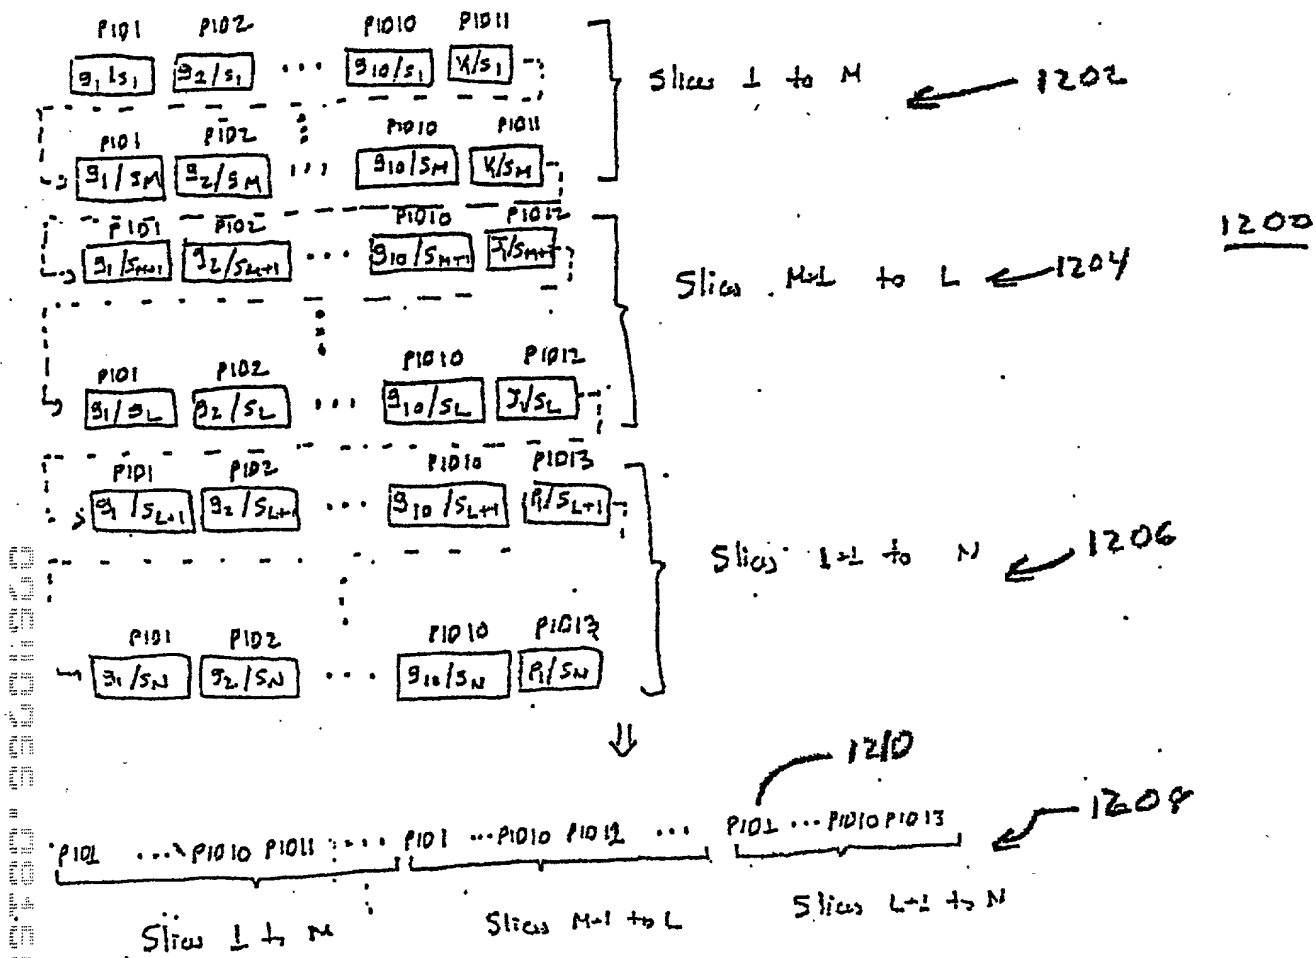 PID1 PID2 PID10 PID11
g1/s1 g2/s1 ... g10/s1 V1/s1
Slices 1 to M
1202
PID1 PID2 PID10 PID11
g1/SM g2/SM ... g10/SM V1/SM
PID1 PID2 PID10 PID12
g1/SM+1 g2/SL+1 ... g10/SM+1 J1/SM+1
1200
Slices M+1 to L
1204
PID1 PID2 PID10 PID12
g1/SL g2/SL ... g10/SL J1/SL
PID1 PID2 PID10 PID13
g1/SL+1 g2/SL+1 ... g10/SL+1 P1/SL+1
Slices L+1 to N
1206
PID1 PID2 PID10 PID13
g1/SN g2/SN ... g10/SN P1/SN
⇓
1210
PID1 ... PID10 PID11 .... PID1 ... PID10 PID12 ... PID1 ... PID10 PID13
1208
Slices 1 to M
Slices M+1 to L
Slices L+1 to N